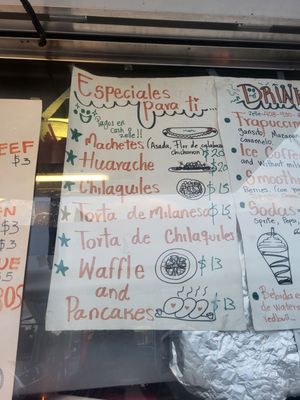 Especiales
para ti...
Pagos en
Cash o
zelle!!
Machetes (Asada, Flor de calabaza
Chicharron) $20
Huarache $20
Chilaquiles $15
Torta de Milanesa $15
Torta de Chilaquiles
Waffle $13
and
Pancakes $13
EEF
$3
$3
$3
UE
$.5
OS
DRIN
Frapuccin
Gansito, Mazapan
Caramelo
Ice Coffee
and Without mil
Smooth
Berries
Sodas
Sprite, Peps
Bebida e
de
redbull